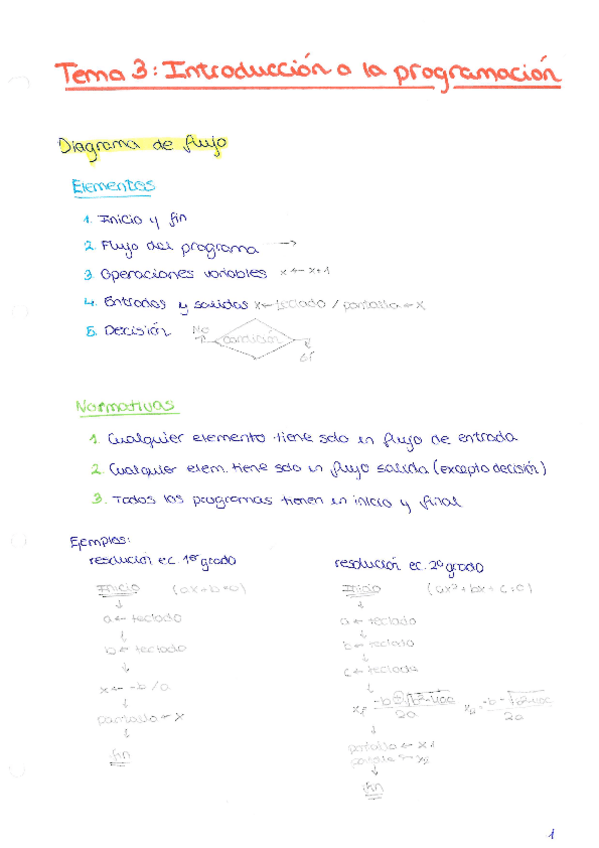 Tema 3: Introducción a la programación
Diagrama de flujo
Elementos
1. Inicio y fin
2. Flujo del programa →
3. Operaciones variables x ← x+1
4. Entradas y salidas x ← teclado / pantalla ← x
5. Decisión No condición sí
Normativas
1. Cualquier elemento tiene solo un flujo de entrada
2. Cualquier elem. tiene solo un flujo salida (excepto decisión)
3. Todos los programas tienen un inicio y final
Ejemplos:
resolución ec. 1er grado
Inicio (ax+b=0)
↓
a ← teclado
↓
b ← teclado
↓
x ← -b/a
↓
pantalla ← x
↓
fin
resolución ec. 2º grado
Inicio (ax²+bx+c=0)
↓
a ← teclado
↓
b ← teclado
↓
c ← teclado
↓
2a 2a
↓
pantalla ← x1
pantalla ← x2
↓
fin
1